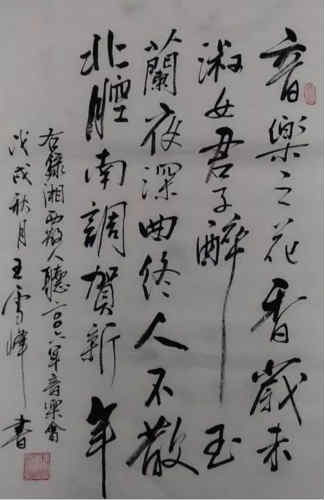 音樂之花香歲末
淑女君子醉玉
蘭夜深曲終人不散
北腔南調賀新年
右錄湘西散人聽二〇〇八年音樂會
戊戌秋月王雪峰書